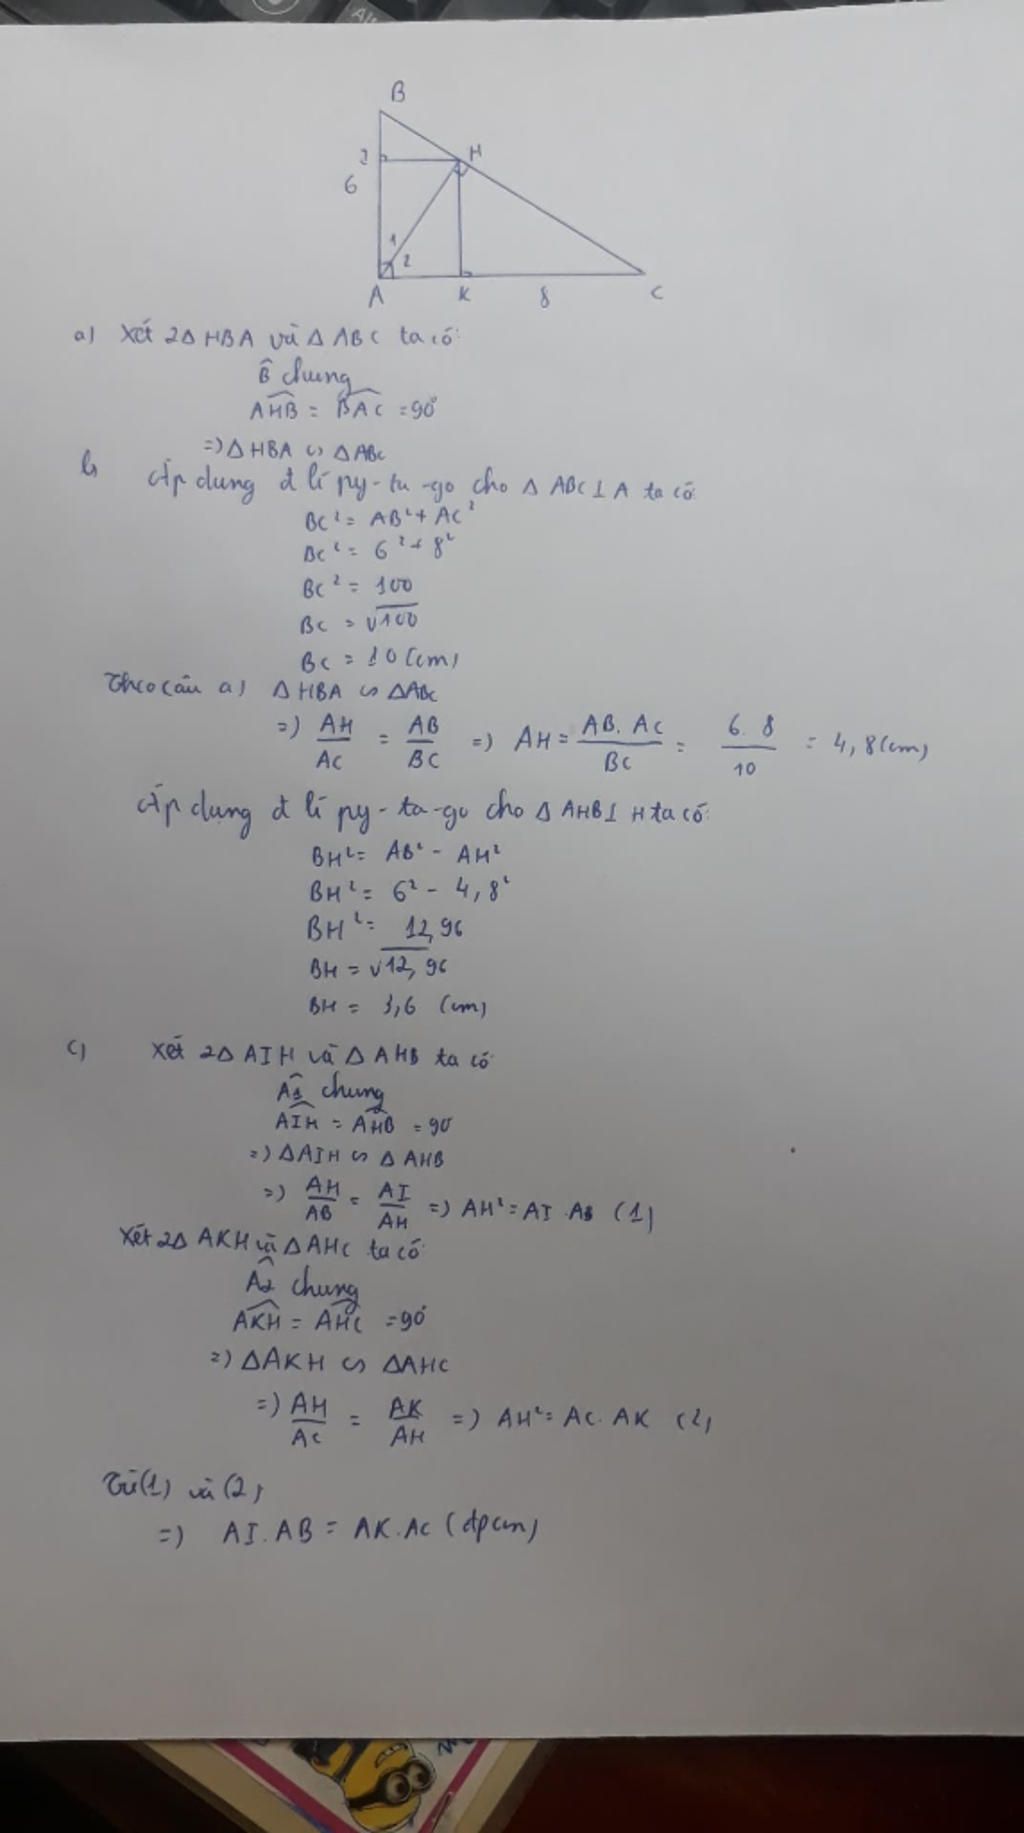 Alt
B
I
H
6
1
2
A
K
8
C
a) Xét 2Δ HBA và Δ ABC ta có:
B̂ chung
AHB = BAC = 90°
=) Δ HBA ∽ Δ ABC
b) Áp dụng đ lí py-ta-go cho Δ ABC ⊥ A ta có
BC² = AB² + AC²
BC² = 6² + 8²
BC² = 100
BC = √100
BC = 10 (cm)
Theo câu a) Δ HBA ∽ Δ ABC
=) AH/AC = AB/BC =) AH = AB. AC/BC = 6. 8/10 = 4,8(cm)
Áp dụng đ lí py-ta-go cho Δ AHB ⊥ H ta có:
BH² = AB² - AH²
BH² = 6² - 4,8²
BH² = 12,96
BH = √12,96
BH = 3,6 (cm)
c) Xét 2Δ AIH và Δ AHB ta có
Â1 chung
AIH = AHB = 90
=) Δ AIH ∽ Δ AHB
=) AH/AB = AI/AH =) AH² = AI . AB (1)
Xét 2Δ AKH và Δ AHC ta có:
Â2 chung
AKH = AHC = 90°
=) Δ AKH ∽ Δ AHC
=) AH/AC = AK/AH =) AH² = AC. AK (2)
Từ (1) và (2)
=) AI. AB = AK. AC (đpcm)